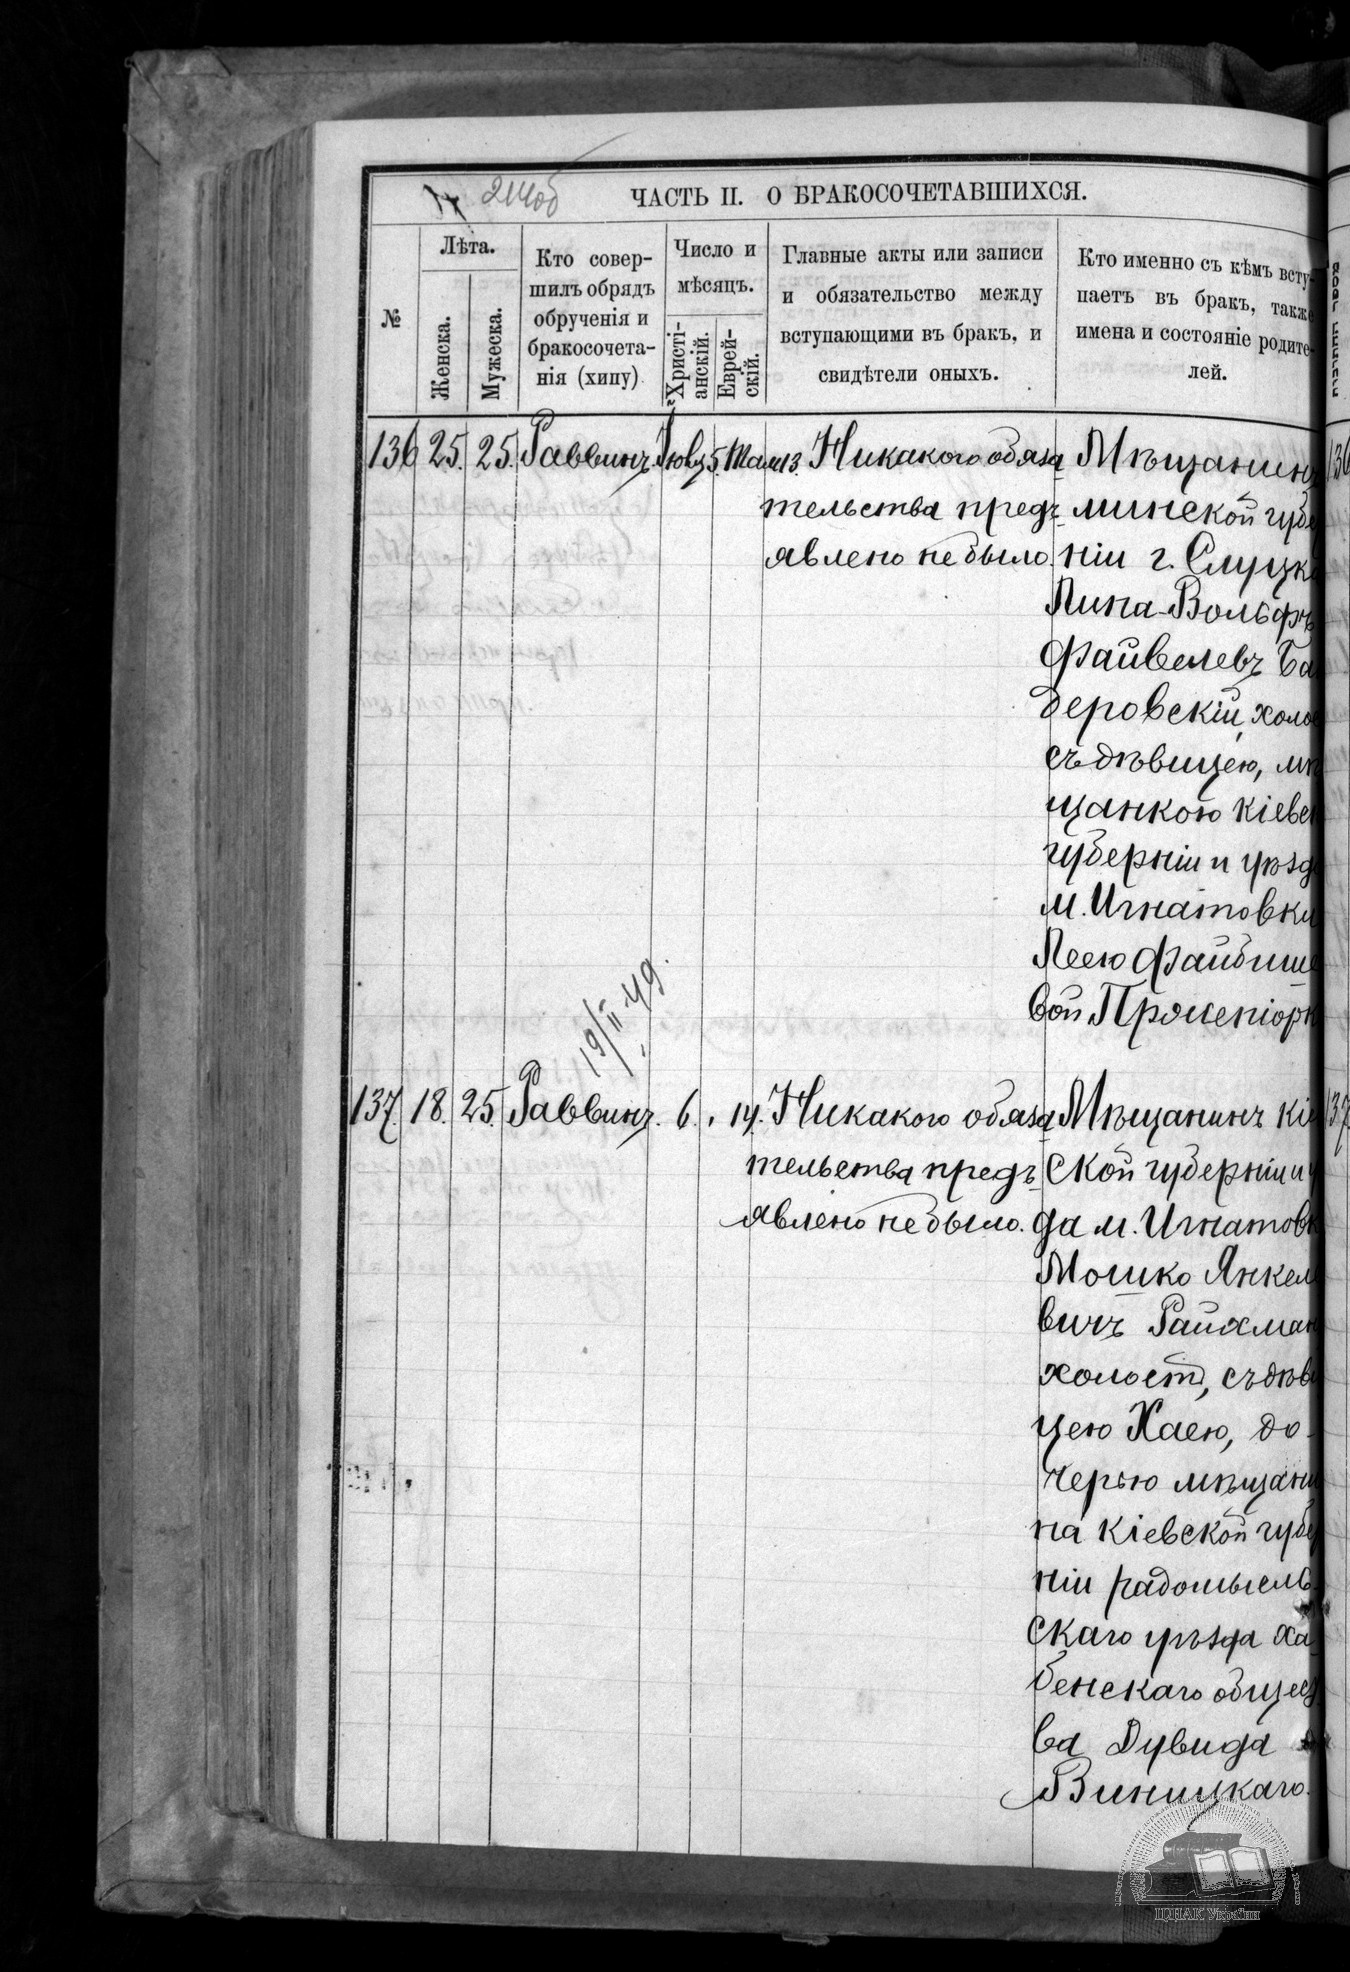 214об
ЧАСТЬ II. О БРАКОСОЧЕТАВШИХСЯ.
№
Лѣта.
Женска.
Мужеска.
Кто совер-
шилъ обрядъ
обрученія и
бракосочета-
нія (хипу)
Число и
мѣсяцъ.
Христі-
анскій.
Еврей-
скій.
Главные акты или записи
и обязательство между
вступающими въ бракъ, и
свидѣтели оныхъ.
Кто именно съ кѣмъ всту-
паетъ въ бракъ, также
имена и состояніе родите-
лей.
136 25. 25. Раввинъ. 5. Там 13. Никакого обяза
тельства предъ
явлено не было.
Мѣщанинъ
минской губе
ніи г. Слуцка
Пина-Вольфъ
Файвелевъ Ба
деровскій, холос
съ дѣвицею, мѣ
щанкою кіевск
губерніи и уѣзда
м. Игнатовки
Леею Файбише
вой
19/II 49.
137. 18. 25. Раввинъ. 6. 14. Никакого обяза
тельства предъ
явлено не было.
Мѣщанинъ кіе
ской губерніи и у
да м. Игнатовк
Мошко Янкеле
вичъ Райхман
холостъ, съ дѣви
цею Хаею, до
черью мѣщани
на кіевской губе
ніи радомысль
скаго уѣзда ха
бенскаго общест
ва Дувида
Виницкаго.
136
137
ЦДІАК України